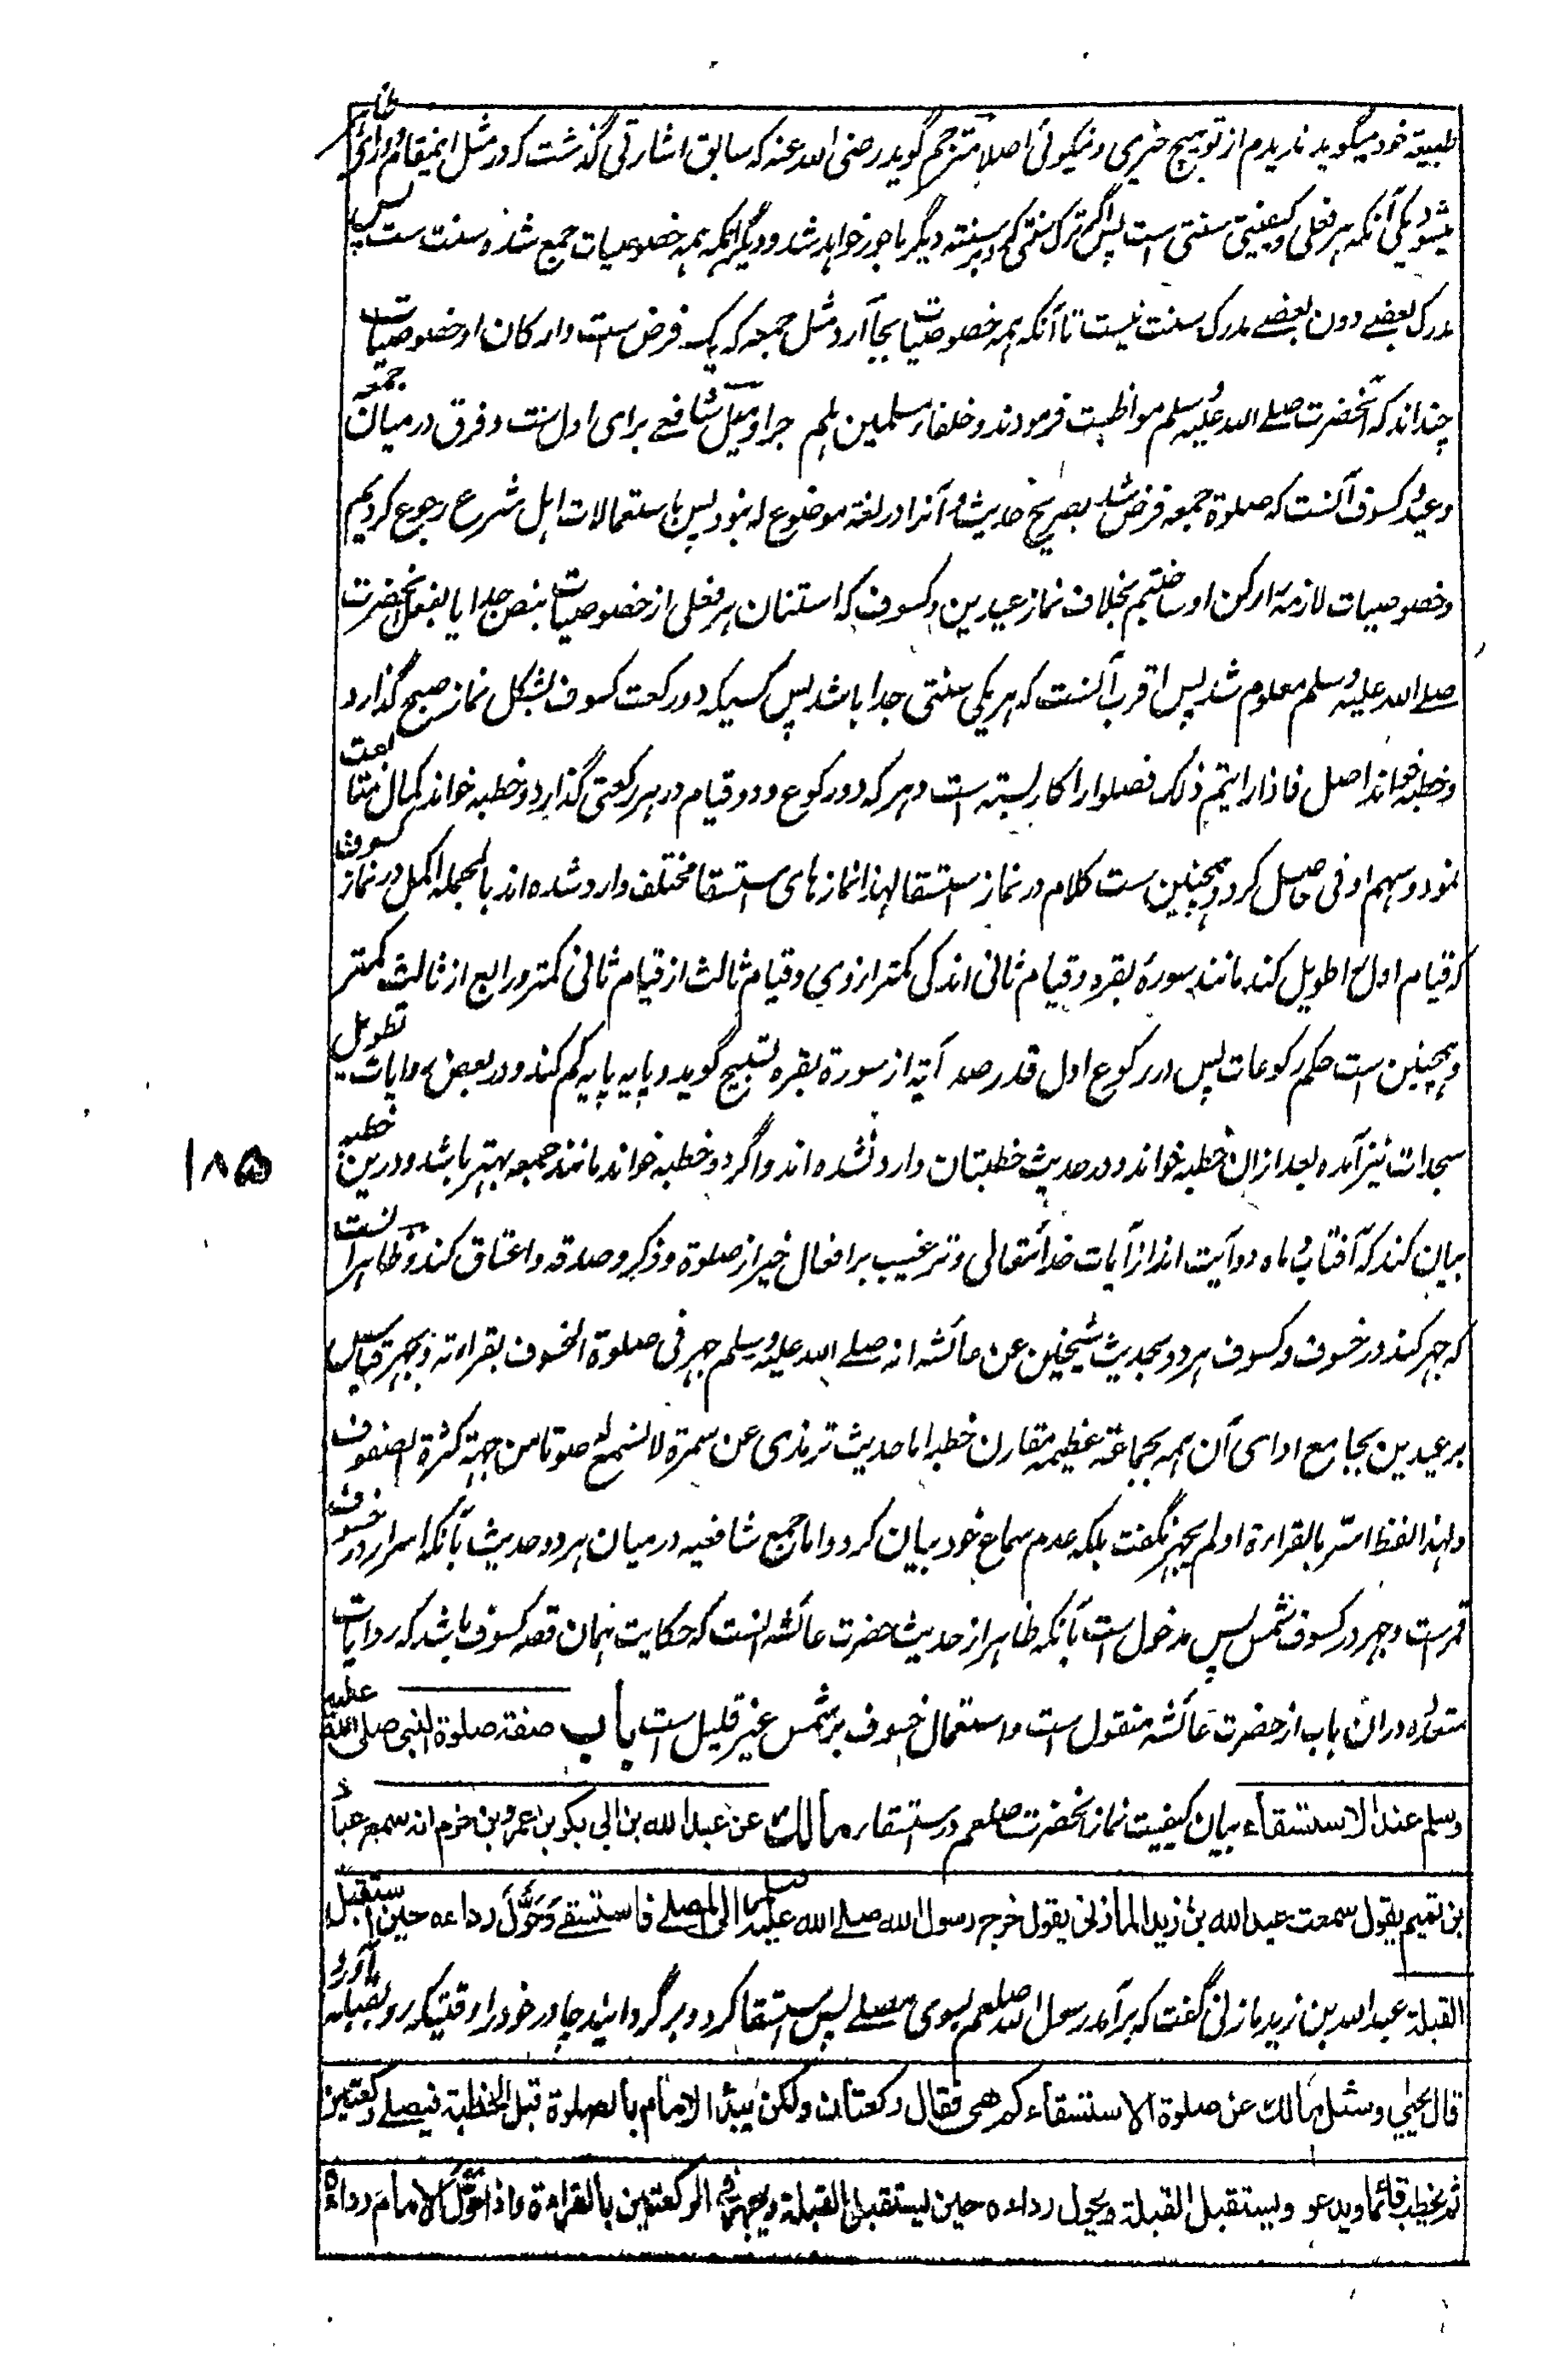 طبیعة خود میگوید ندیدم از تو هیچ خیری و نیکوئی اصلا مترجم گوید رضی الله عنه که سابق اشارتی گذشت که در مثل اینمقام دو رای ظاهر
میشود یکی آنکه هر فعلی و کیفیتی سنتی است پس اگر ترک سنتی کرد بر سنته دیگر ماجور خواهد شد و دیگر آنکه همه خصوصیات جمع شده سنت ست پس
مدرک بعضے دون بعضے مدرک سنت نیست تا آنکه همه خصوصیات بجا آرد مثل جمعه که یک فرض ست و ارکان او خصوصیات
چند اند که آنحضرت صلے الله علیه وسلم مواظبت فرمودند و خلفا و مسلمین هلم جرا و میل شافعے برای اول ست و فرق درمیان جمعه
و عید و کسوف آنست که صلوة جمعه فرض شد بصریح حدیث و آنرا در لغة موضوع له نبود پس باستعمالات اهل شرع رجوع کردیم
و خصوصیات لازمه را رکن او ساختیم بخلاف نماز عیدین و کسوف که استنان هر فعلی از خصوصیات بنص جدا یا بفعل آنحضرت
صلے الله علیه وسلم معلوم شد پس اقرب آنست که هر یکی سنتی جدا باشد پس کسیکه دو رکعت کسوف بشکل نماز صبح گذارد
و خطبه خواند اصل فاذا رایتم ذلک فصلوا را کار بسته است و هر که دو رکوع و دو قیام در هر رکعتی گذارد و خطبه خواند کمال متابعت
نمود و سهم اوفی حاصل کرد و همچنین ست کلام در نماز استسقا لهذا نمازهای استسقا مختلف وارد شده اند بالجمله اکمل در نماز کسوف
که قیام اول را طویل کند مانند سورۀ بقره و قیام ثانی اندکی کمتر از وی و قیام ثالث از قیام ثانی کمتر و رابع از ثالث کمتر
و همچنین است حکم رکوعات پس در رکوع اول قدر صد آیة از سورة بقره تسبیح گوید و پایه پایه کم کند و در بعض روایات تطویل
سجدات نیز آمده بعد ازان خطبه خواند و در حدیث خطبتان وارد نشده اند و اگر دو خطبه خواند مانند جمعه بهتر باشد و درین خطبه
بیان کند که آفتاب و ماه دو آیت اند از آیات خدایتعالی و ترغیب بر افعال خیر از صلوة و ذکر و صدقه و اعتاق کند و ظاهر آنست
که جهر کند در خسوف و کسوف هر دو بحدیث شیخین عن عائشه انه صلے الله علیه وسلم جهر فی صلوة الخسوف بقراءته و بجهر قیاس
بر عیدین بجامع ادای آن همه بجماعة عظیمه مقارن خطبه اما حدیث ترمذی عن سمرة لا نسمع له صوتا من جهة کثرة الصفوف
و لهذا لفظ اسر بالقراءة او لم یجهر نگفت بلکه عدم سماع خود بیان کرد و اما جمع شافعیه درمیان هر دو حدیث بآنکه اسرار در خسوف
قمرست و جهر در کسوف شمس پس مدخول است بآنکه ظاهر از حدیث حضرت عائشه آنست که حکایت همان قصه کسوف باشد که روایات
متعدده دران باب از حضرت عائشه منقول است و استعمال خسوف بر شمس غیر قلیل ست باب صفة صلوة النبی صلی الله علیه
وسلم عند الاستسقاء بیان کیفیت نماز آنحضرت صلعم در استسقا مالک عن عبد الله بن ابی بکر بن عمرو بن حزم انه سمع عباد
بن تمیم یقول سمعت عبد الله بن زید المازنی یقول خرج رسول الله صلے الله علیه وسلم الی المصلے فاستسقے وَحَوَّلَ رداءه حین استقبل
القبلة عبد الله بن زید مازنی گفت که برآمد رسول الله صلعم بسوی مصلے پس استسقا کرد و برگردانید چادر خود را وقتیکه رو بقبله آورد
قال یحیی وسئل مالک عن صلوة الاستسقاء کم هی فقال رکعتان ولکن یبدأ الامام بالصلوة قبل الخطبة فیصلے رکعتین
ثم یخطب قائما ویدعو ویستقبل القبلة ویحول رداءه حین یستقبل القبلة ویجهر فی الرکعتین بالقراءة واذا حَوَّلَ الامام رداءه
۱۸۵